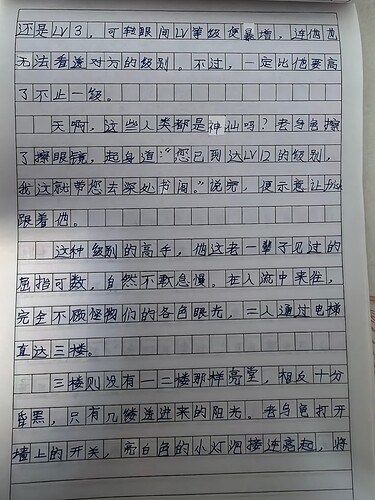 还是LV3，可转眼间LV等级便暴增，连他也
无法看透对方的级别。不过，一定比他要高
了不止一级。
天啊，这些人类都是神仙吗？老乌龟擦
了擦眼镜，起身道："您已到达LV12的级别，
我这就带您去深处书阁。"说完，便示意让
跟着他。
这种级别的高手，他这老一辈子见过的
屈指可数，自然不敢怠慢。在人流中来往，
完全不顾怪物们的各色眼光，二人通过电梯
直达三楼。
三楼则没有一二楼那样亮堂，相反十分
昏黑，只有几缕透进来的阳光。老乌龟打开
墙上的开关，亮白色的小灯泡接连亮起，将